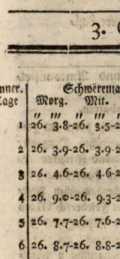 3.
nner. Schwerem
tage Morg. Mit.
" ''' " ''' "
1 26. 3.8-26. 3.5-2
2 26. 3.9-26. 3.9-2
3 26. 4.6-26. 4.6-2
4 26. 9.0-26. 9.3-2
5 26. 7.7-26. 7.6-2
6 26. 8.7-26. 8.8-2